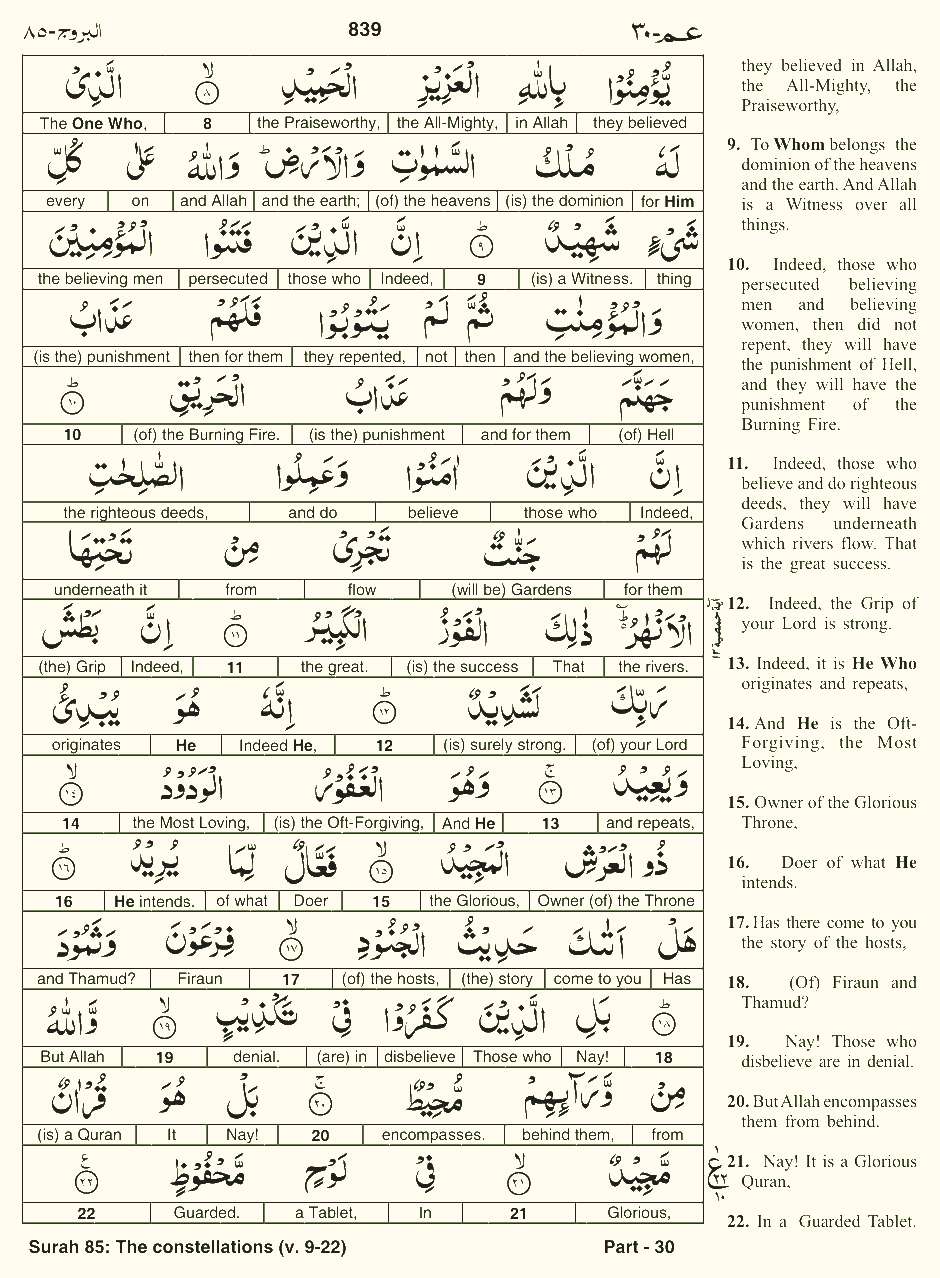 البروج-٨٥
839
عـم-٣٠
يُّؤْمِنُوْا بِاللّٰهِ الْعَزِيْزِ الْحَمِيْدِ ۙ‏ ٨ الَّذِىْ
The One Who, | 8 | the Praiseworthy, | the All-Mighty, | in Allah | they believed
لَهٗ مُلْكُ السَّمٰوٰتِ وَالْاَرْضِ ؕ وَاللّٰهُ عَلٰى كُلِّ
every | on | and Allah | and the earth; | (of) the heavens | (is) the dominion | for Him
شَىْءٍ شَهِيْدٌ ؕ ٩ اِنَّ الَّذِيْنَ فَتَنُوا الْمُؤْمِنِيْنَ
the believing men | persecuted | those who | Indeed, | 9 | (is) a Witness. | thing
وَالْمُؤْمِنٰتِ ثُمَّ لَمْ يَتُوْبُوْا فَلَهُمْ عَذَابُ
(is the) punishment | then for them | they repented, | not | then | and the believing women,
جَهَنَّمَ وَلَهُمْ عَذَابُ الْحَرِيْقِ ؕ ١٠
10 | (of) the Burning Fire. | (is the) punishment | and for them | (of) Hell
اِنَّ الَّذِيْنَ اٰمَنُوْا وَعَمِلُوا الصّٰلِحٰتِ
the righteous deeds, | and do | believe | those who | Indeed,
لَهُمْ جَنّٰتٌ تَجْرِىْ مِنْ تَحْتِهَا
underneath it | from | flow | (will be) Gardens | for them
الْاَنْهٰرُ ؕ ذٰلِكَ الْفَوْزُ الْكَبِيْرُ ؕ ١١ اِنَّ بَطْشَ
(the) Grip | Indeed, | 11 | the great. | (is) the success | That | the rivers.
رَبِّكَ لَشَدِيْدٌ ؕ ١٢ اِنَّهٗ هُوَ يُبْدِئُ
originates | He | Indeed He, | 12 | (is) surely strong. | (of) your Lord
وَيُعِيْدُ ۚ ١٣ وَهُوَ الْغَفُوْرُ الْوَدُوْدُ ۙ ١٤
14 | the Most Loving, | (is) the Oft-Forgiving, | And He | 13 | and repeats,
ذُو الْعَرْشِ الْمَجِيْدُ ۙ ١٥ فَعَّالٌ لِّمَا يُرِيْدُ ؕ ١٦
16 | He intends. | of what | Doer | 15 | the Glorious, | Owner (of) the Throne
هَلْ اَتٰىكَ حَدِيْثُ الْجُنُوْدِ ۙ ١٧ فِرْعَوْنَ وَثَمُوْدَ
and Thamud? | Firaun | 17 | (of) the hosts, | (the) story | come to you | Has
ؕ ١٨ بَلِ الَّذِيْنَ كَفَرُوْا فِىْ تَكْذِيْبٍ ۙ ١٩ وَّاللّٰهُ
But Allah | 19 | denial. | (are) in | disbelieve | Those who | Nay! | 18
مِنْ وَّرَآئِهِمْ مُّحِيْطٌ ۚ ٢٠ بَلْ هُوَ قُرْاٰنٌ
(is) a Quran | It | Nay! | 20 | encompasses. | behind them, | from
مَّجِيْدٌ ۙ ٢١ فِىْ لَوْحٍ مَّحْفُوْظٍ ٢٢
22 | Guarded. | a Tablet, | In | 21 | Glorious,
they believed in Allah,
the All-Mighty, the
Praiseworthy,
9. To Whom belongs the
dominion of the heavens
and the earth. And Allah
is a Witness over all
things.
10. Indeed, those who
persecuted believing
men and believing
women, then did not
repent, they will have
the punishment of Hell,
and they will have the
punishment of the
Burning Fire.
11. Indeed, those who
believe and do righteous
deeds, they will have
Gardens underneath
which rivers flow. That
is the great success.
12. Indeed, the Grip of
your Lord is strong.
13. Indeed, it is He Who
originates and repeats,
14. And He is the Oft-
Forgiving, the Most
Loving,
15. Owner of the Glorious
Throne,
16. Doer of what He
intends.
17. Has there come to you
the story of the hosts,
18. (Of) Firaun and
Thamud?
19. Nay! Those who
disbelieve are in denial.
20. But Allah encompasses
them from behind.
21. Nay! It is a Glorious
Quran,
22. In a Guarded Tablet.
ع
٢٢
١٠
Surah 85: The constellations (v. 9-22)
Part - 30